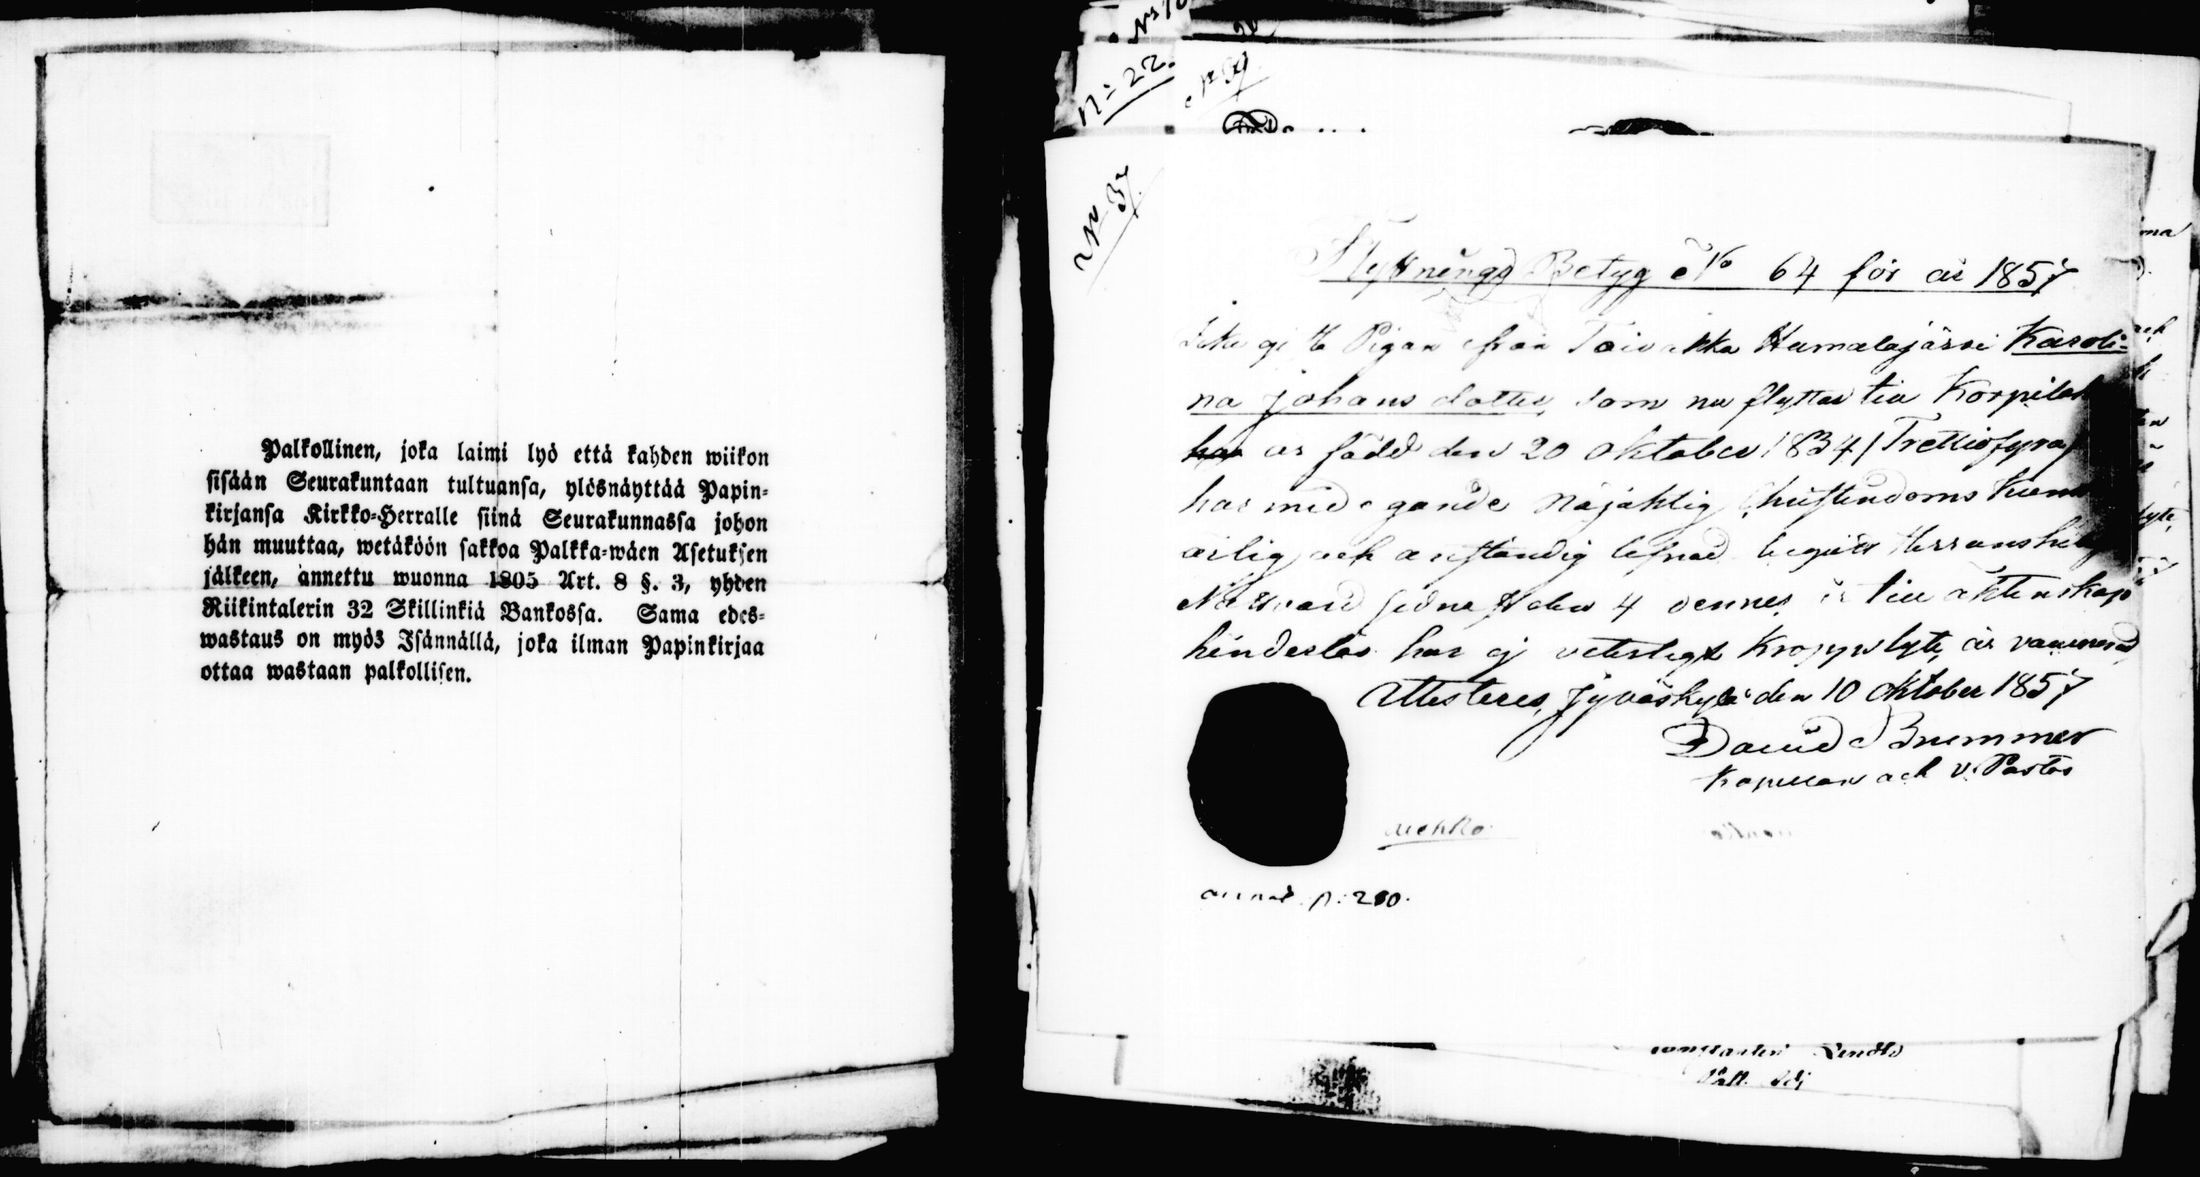 Palkollinen, joka laimi lyö että kahden wiikon
sisään Seurakuntaan tultuansa, ylösnäyttää Papin-
kirjansa Kirkko-Herralle siinä Seurakunnassa johon
hän muuttaa, wetäköön sakkoa Palkka-wäen Asetuksen
jälkeen, annettu wuonna 1805 Art. 8 §. 3, yhden
Riikintalerin 32 Skillinkiä Bankossa. Sama edes-
wastaus on myös Isännällä, joka ilman Papinkirjaa
ottaa wastaan palkollisen.
N:22.
No 37.
Flyttnings Betyg No 64 för år 1857
Pigan ifrån Toivakka Humalajärvi Karoli-
na Johans dotter, som nu flyttar till Korpilah
är född den 20 Oktober 1834 / Trettiofyra /
har Christendoms Kun
ärlig och anständig lefnad begått Herrans
Nattvard sedna st den 4 dennes, är till äktenskap
hinderlös har ej veterligt Kroppslyte, är vaccinerad,
Attesteres, Jyväskylä den 10 Oktober 1857
David Brummer
Kapellan och v. Pastor
p: 280.